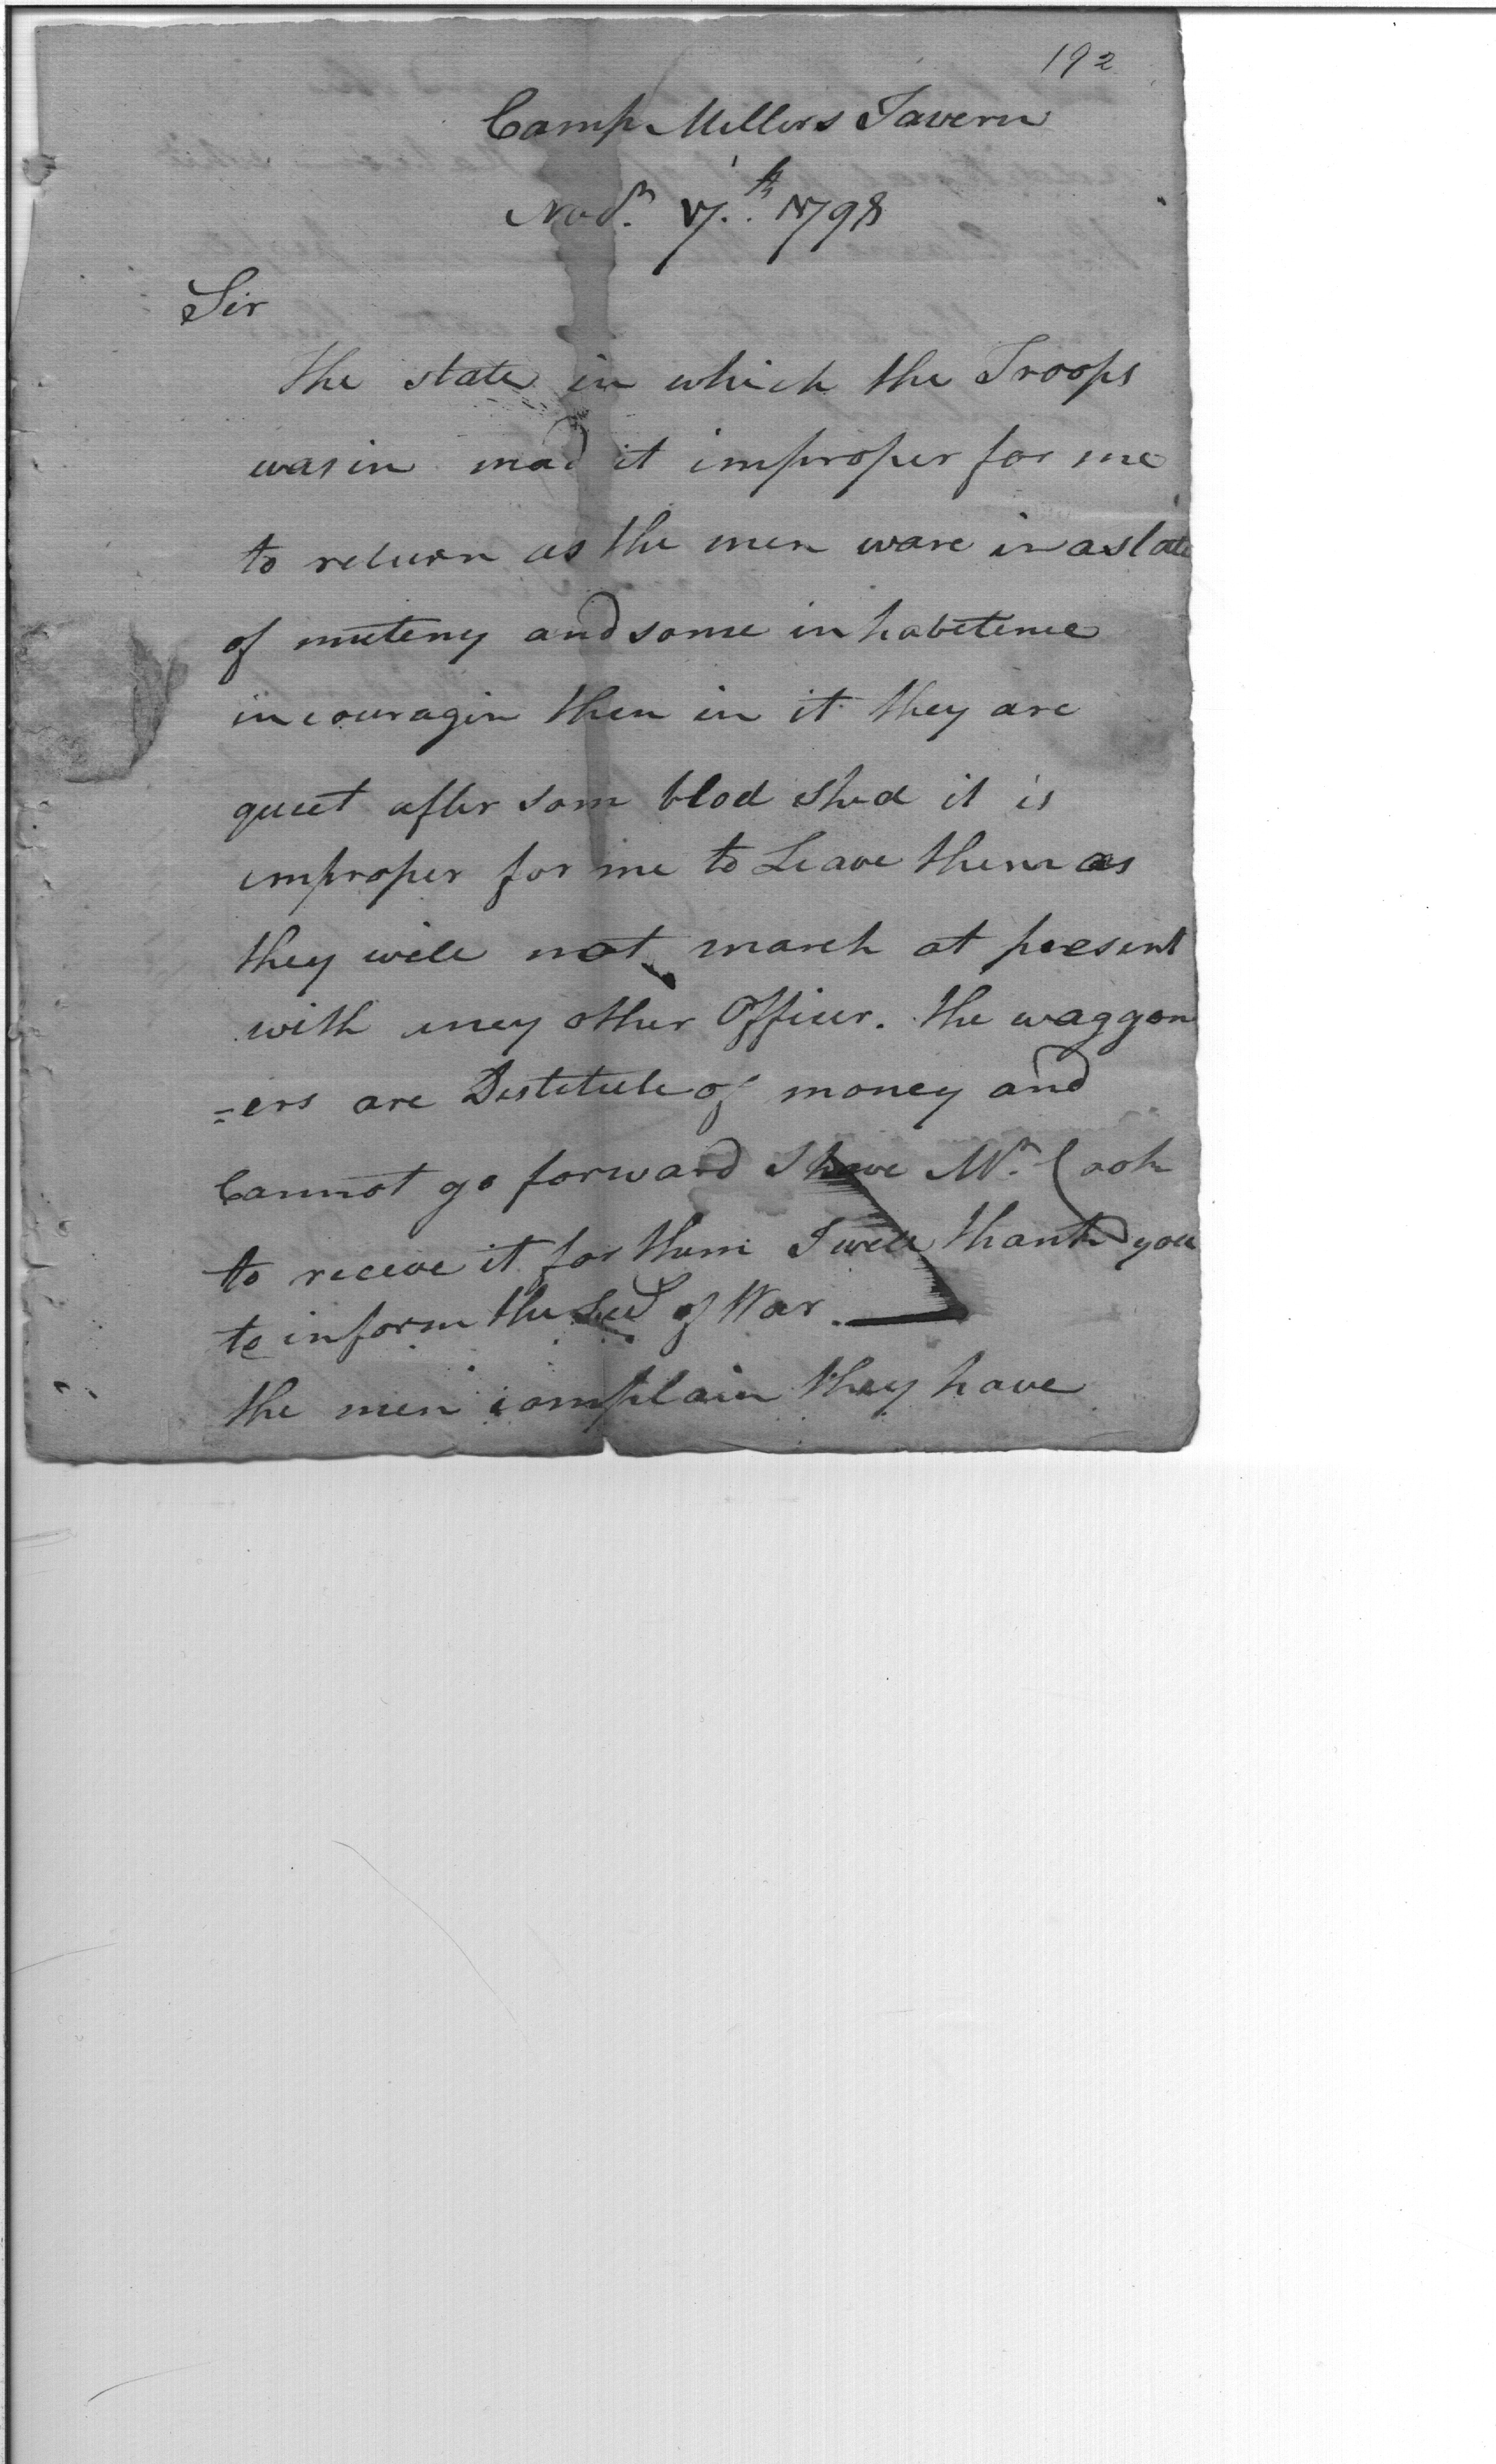 192
Camp Millers Tavern
Nov.r 17.th 1798
Sir
the state in which the Troops
was in mad it improper for me
to return as the men ware in a state
of muteny and some inhabetence
incouragin them in it they are
quiet after som blod shed it is
improper for me to Leave them as
they will not march at present
with eney other Officer. the waggon
=ers are Destitute of money and
Cannot go forward I have Mr. Cook
to receive it for them I will thank you
to inform the Sec of War
the men complain they have